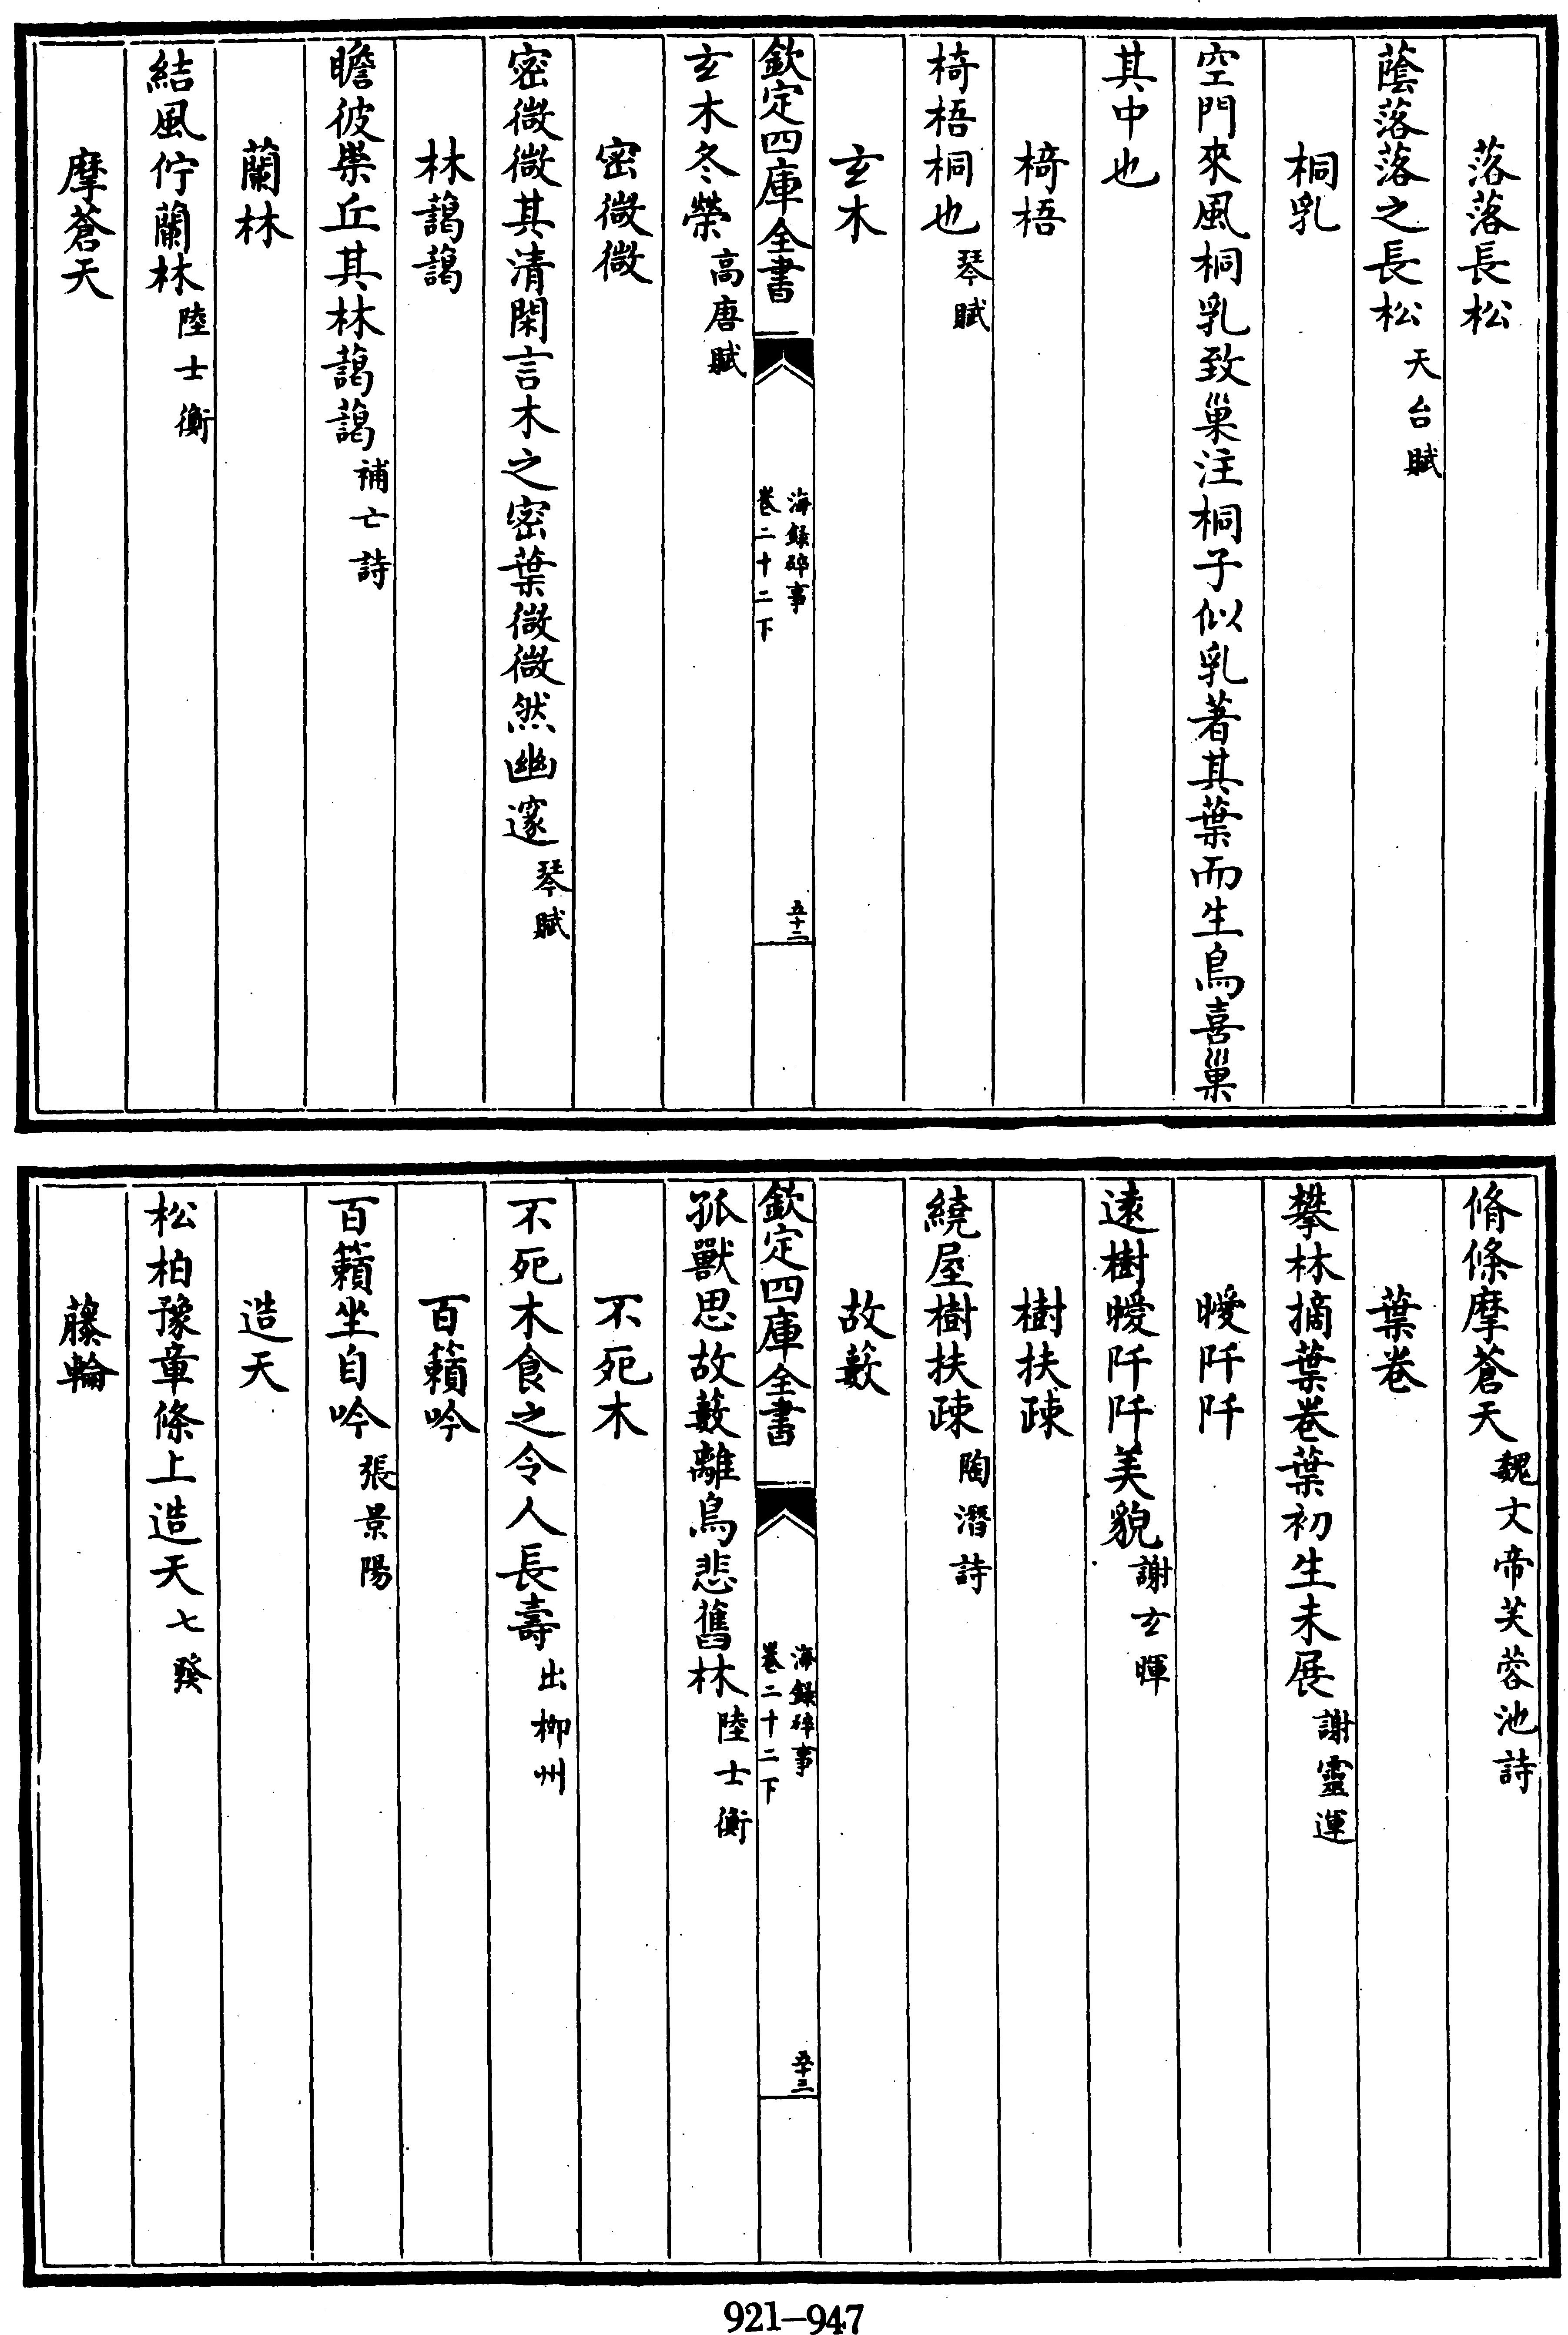 落落長松
蔭落落之長松天台賦
桐乳
空門來風桐乳致巢注桐子似乳著其葉而生鳥喜巢
其中也
椅梧
椅梧桐也琴賦
玄木
欽定四庫全書
海録碎事
卷二十二下
五十二
玄木冬榮高唐賦
密微微
密微微其清閑言木之密葉微微然幽邃琴賦
林藹藹
瞻彼崇丘其林藹藹補亡詩
蘭林
結風佇蘭林陸士衡
摩蒼天
脩條摩蒼天魏文帝芙蓉池詩
葉卷
攀林摘葉卷葉初生未展謝靈運
曖阡阡
遠樹曖阡阡美貌謝玄暉
樹扶疎
繞屋樹扶疎陶潛詩
故藪
欽定四庫全書
海録碎事
卷二十二下
五十三
孤獸思故藪離鳥悲舊林陸士衡
不死木
不死木食之令人長壽出柳州
百籟吟
百籟坐自吟張景陽
造天
松柏豫章條上造天七發
藤輪
921-947